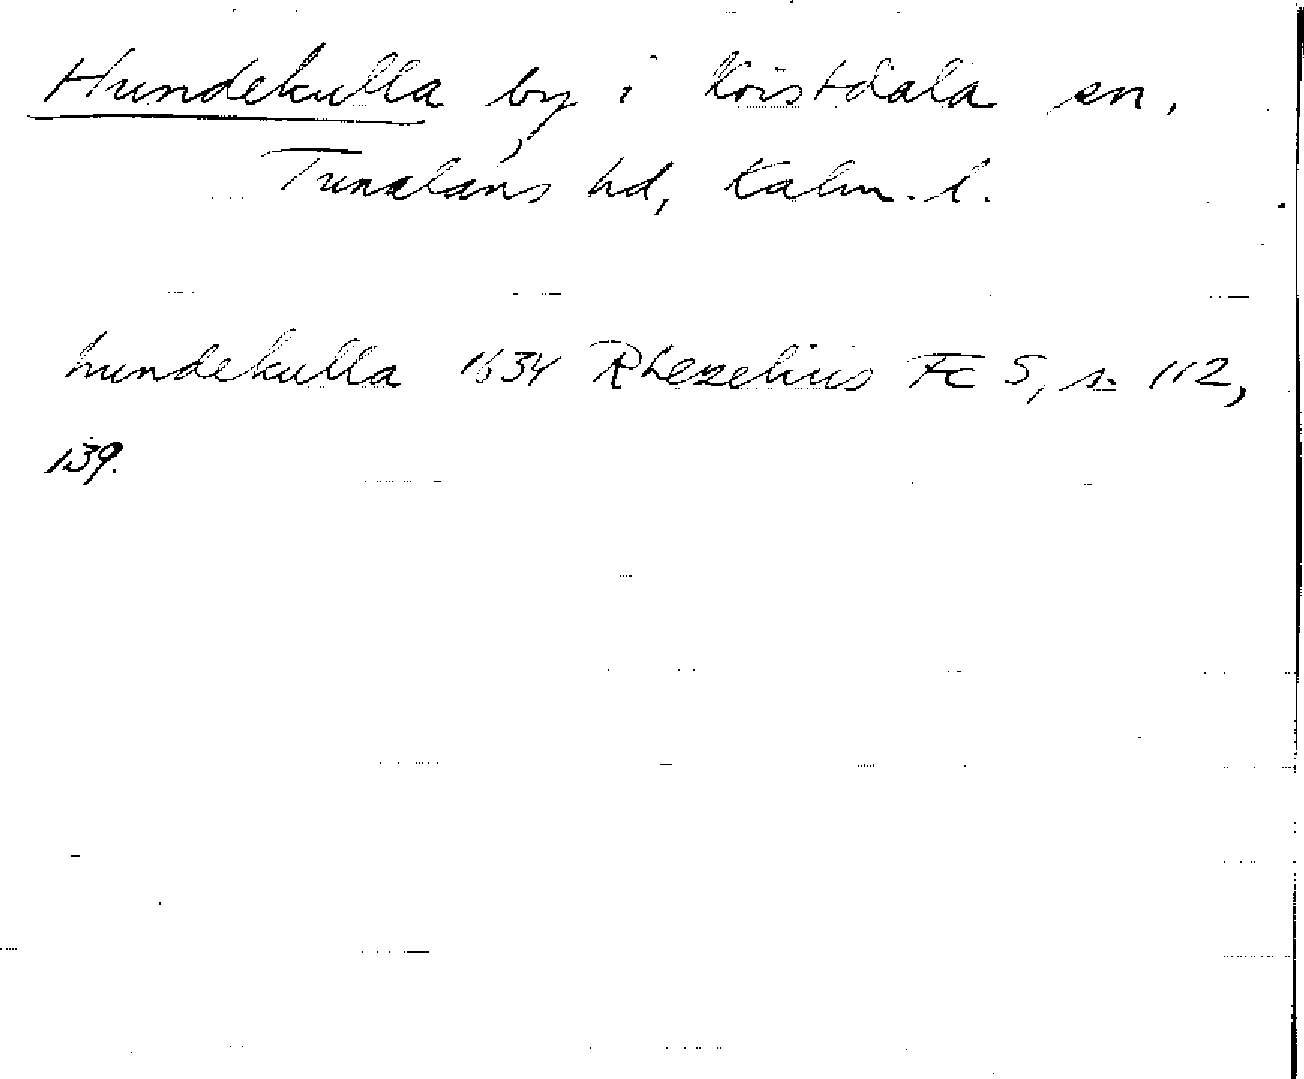 Hundekulla by i Kristdala sn,
Tunaläns hd, Kalm. l.
hundekulla 1634 Rhezelius Fc 5, s. 112,
139.